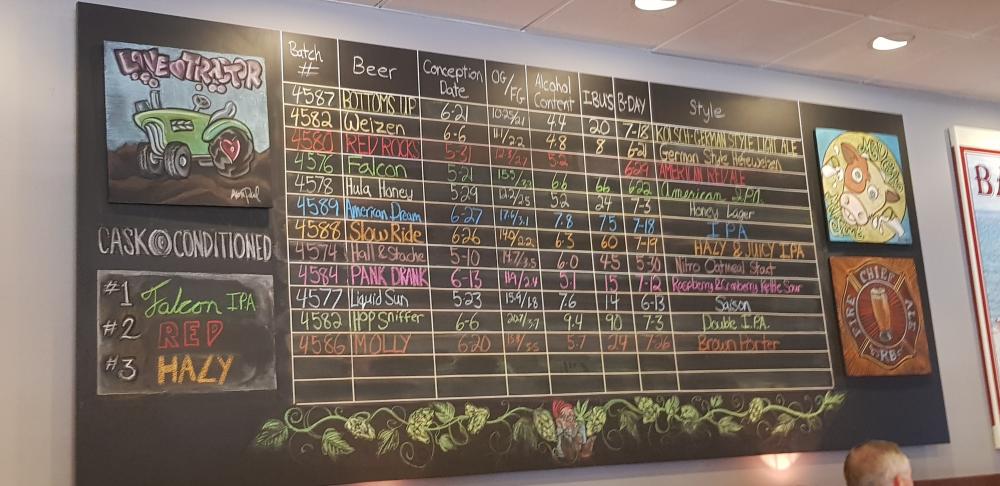 LOVE TRACTOR
CASK CONDITIONED
#1 Falcon IPA
#2 RED
#3 HAZY
Batch # Beer Conception Date OG/FG Alcohol Content IBU'S B-DAY Style
4587 BOTTOMS UP 6-21 4.4 20 7-18 KOLSCH-GERMAN STYLE LIGHT ALE
4582 Weizen 6-6 11.1/2.2 4.8 8 6-21 German Style Hefeweizen
4580 RED ROCKS 5-31 5.2 6-29 AMERICAN RED ALE
4576 Falcon 5-21 6.6 66 6-22 American I.P.A.
4578 Hula Honey 5-29 12.2/2.5 5.2 24 7-3 Honey Lager
4589 American Dream 6-27 17.6/3.1 7.8 75 7-18 IPA
4588 Slow Ride 6-26 14.0/2.2 6.3 60 7-19 HAZY & JUICY IPA
4574 Hall & Stache 5-10 14.7/3.5 6.0 45 5-30 Nitro Oatmeal Stout
4584 PANK DRANK 6-13 11.9/2.4 5.1 15 7-12 Raspberry & Cranberry Kettle Sour
4577 Liquid Sun 5-23 15.9/1.8 7.6 14 6-13 Saison
4582 Hop Sniffer 6-6 20.7/3.7 9.4 90 7-3 Double I.P.A.
4586 MOLLY 6-20 5.7 24 7-26 Brown Porter
CHIEF
FIRE
ALE
RB
BA